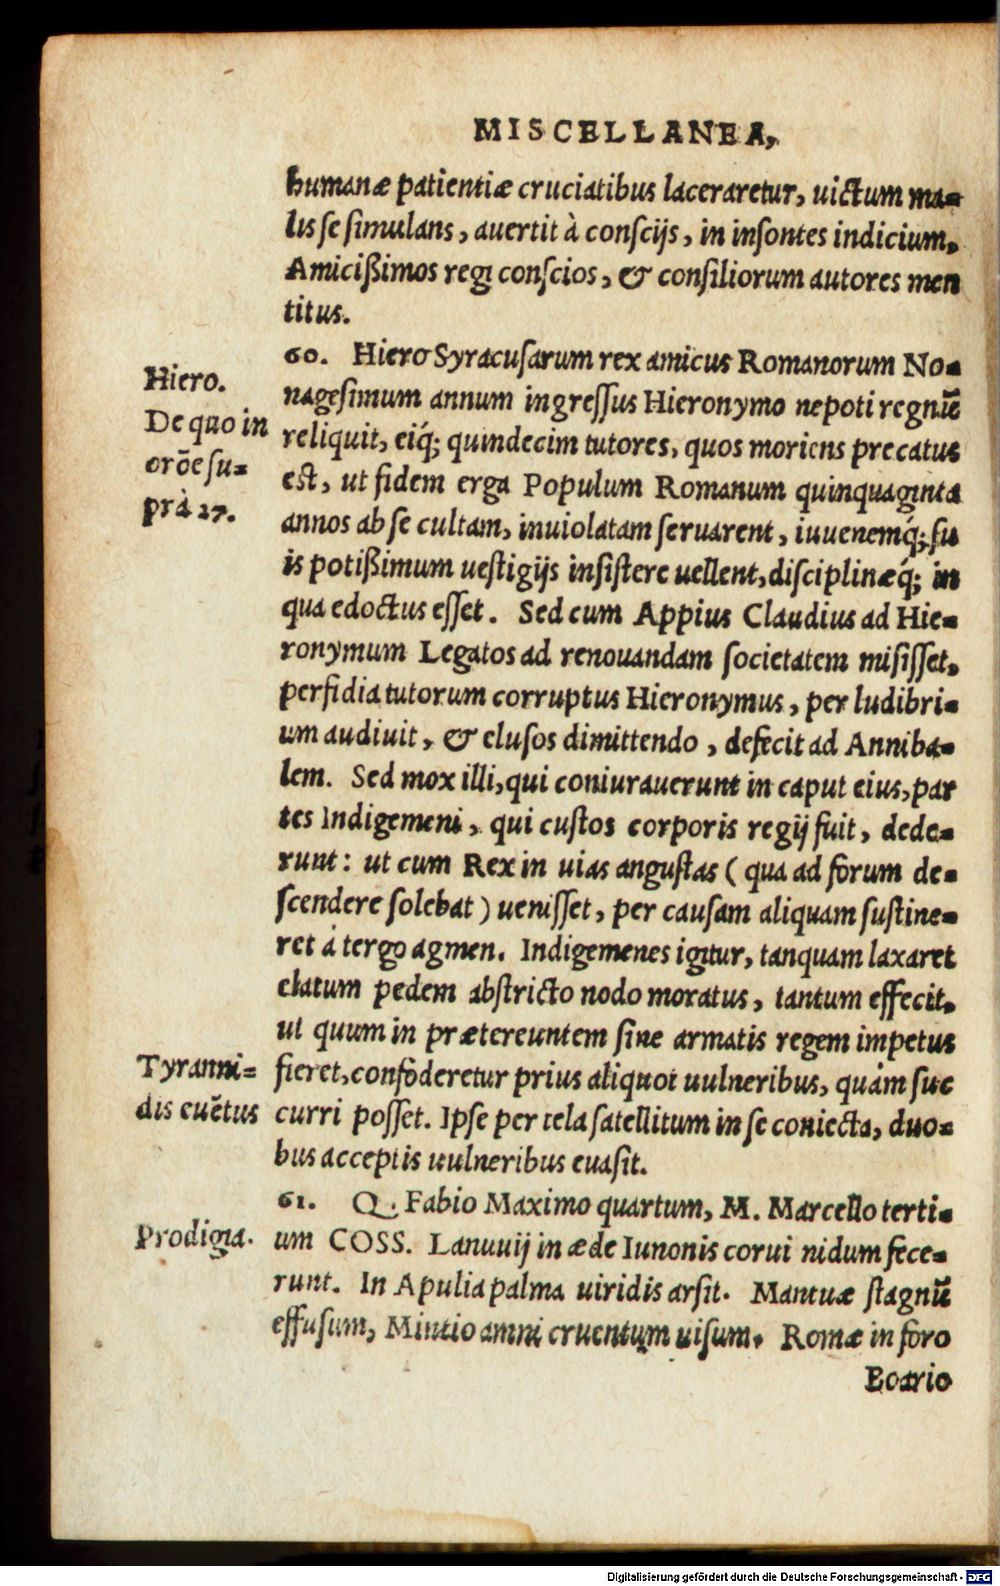 MISCELLANEA,
humanæ patientiæ cruciatibus laceraretur, uictum ma=
lis se simulans, auertit à conscijs, in insontes indicium,
Amicißimos regi conscios, & consiliorum autores men
titus.
60. Hiero Syracusarum rex amicus Romanorum No=
nagesimum annum ingressus Hieronymo nepoti regnũ
reliquit, eiq́; quindecim tutores, quos moriens precatus
est, ut fidem erga Populum Romanum quinquaginta
annos ab se cultam, inuiolatam seruarent, iuuenemq́; su
is potißimum uestigijs insistere uellent, disciplinæq́; in
qua edoctus esset. Sed cum Appius Claudius ad Hie=
ronymum Legatos ad renouandam societatem misisset,
perfidia tutorum corruptus Hieronymus, per ludibri=
um audiuit, & elusos dimittendo, defecit ad Anniba=
lem. Sed mox illi, qui coniurauerunt in caput eius, par
tes Indigemeni, qui custos corporis regij fuit, dede=
runt: ut cum Rex in uias angustas ( qua ad forum de=
scendere solebat ) uenisset, per causam aliquam sustine=
ret á tergo agmen. Indigemenes igitur, tanquam laxaret
elatum pedem abstricto nodo moratus, tantum effecit,
ut quum in prætereuntem sine armatis regem impetus
fieret, confoderetur prius aliquot uulneribus, quàm suc
curri posset. Ipse per tela satellitum in se coniecta, duo=
bus acceptis uulneribus euasit.
61. Q. Fabio Maximo quartum, M. Marcello terti=
um COSS. Lanuuij in æde Iunonis corui nidum fece=
runt. In Apulia palma uiridis arsit. Mantuæ stagnũ
effusum, Mintio amni cruentum uisum. Romæ in foro
Boario
Hiero.
De quo in
orõe su=
prà 27.
Tyranni=
dis euẽtus
Prodigia.
Digitalisierung gefördert durch die Deutsche Forschungsgemeinschaft - DFG